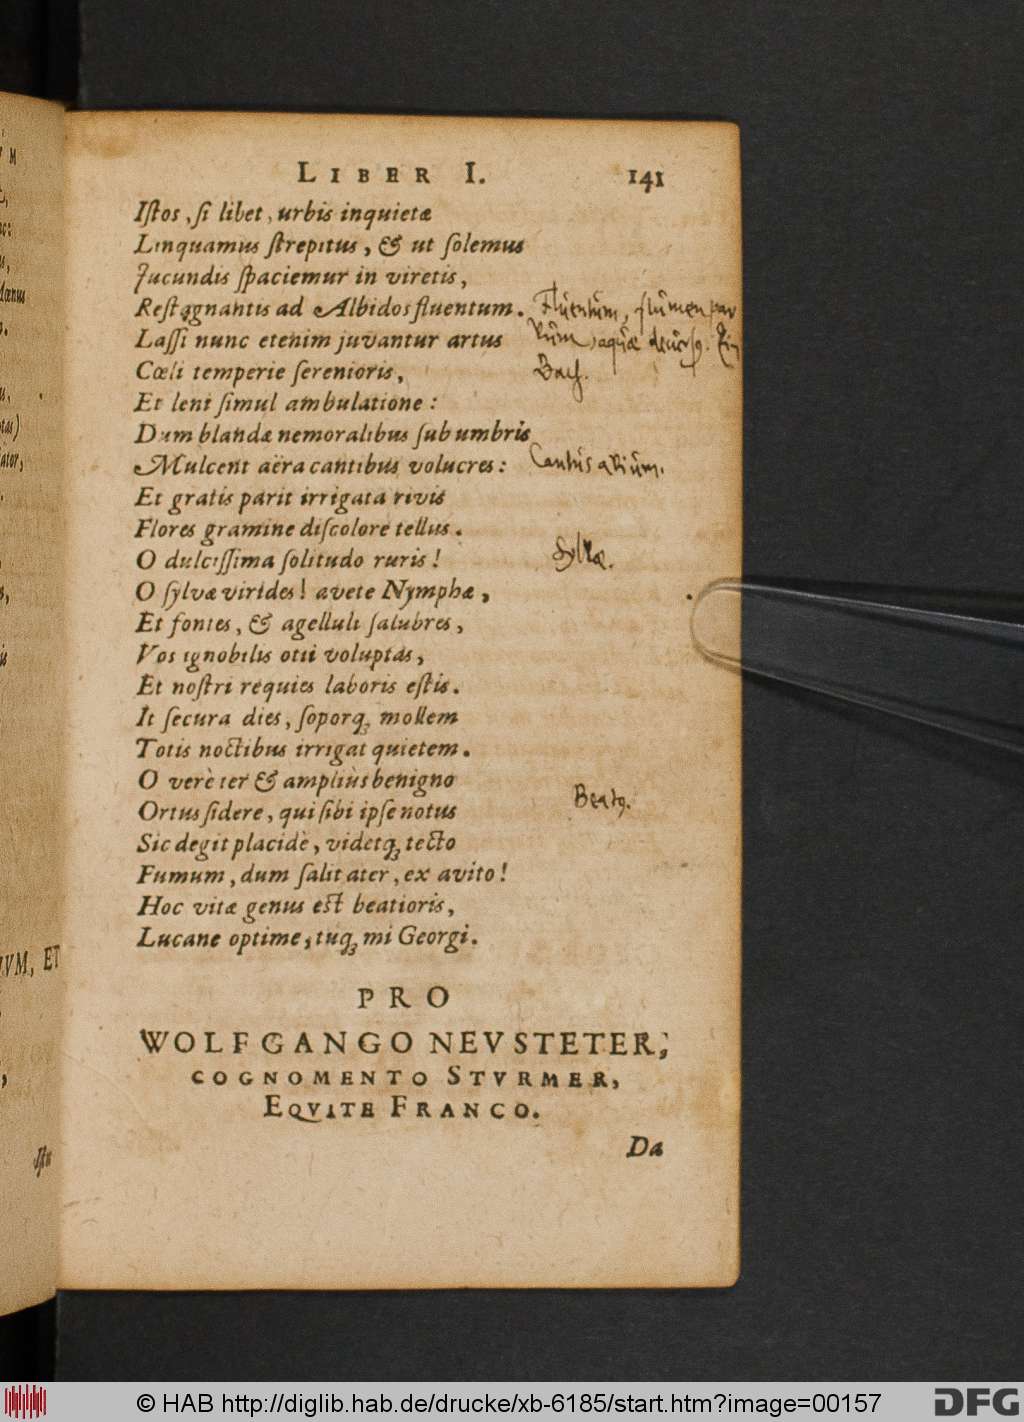 LIBER I. 141
Iſtos, ſi libet, urbis inquietæ
Linquamus ſtrepitus, & ut ſolemus
Jucundis ſpaciemur in viretis,
Reſtagnantis ad Albidos fluentum. Fluentum, flumen par
Laſſi nunc etenim juvantur artus vum, aquæ decurſ9. Ein
Cœli temperie ſerenioris, Bach.
Et leni ſimul ambulatione:
Dum blandæ nemoralibus ſub umbris
Mulcent aëra cantibus volucres: Cantus avium.
Et gratis parit irrigata rivis
Flores gramine diſcolore tellus.
O dulciſſima ſolitudo ruris! Sylvæ.
O ſylvæ virides! avete Nymphæ,
Et fontes, & agelluli ſalubres,
Vos ignobilis otii voluptas,
Et noſtri requies laboris eſtis.
It ſecura dies, ſoporq; mollem
Totis noctibus irrigat quietem.
O verè ter & ampliùs benigno
Ortus ſidere, qui ſibi ipſe notus Beat9.
Sic degit placidè, videtq; tecto
Fumum, dum ſalit ater, ex avito!
Hoc vitæ genus eſt beatioris,
Lucane optime, tuq; mi Georgi.
PRO
WOLFGANGO NEVSTETER,
COGNOMENTO STVRMER,
EQVITE FRANCO.
Da
VM, ET
Iſtu
© HAB http://diglib.hab.de/drucke/xb-6185/start.htm?image=00157
DFG